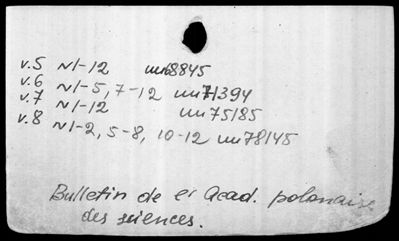 v.5 N1-12 инв8845
v.6 N1-5, 7-12 инв71394
v.7 N1-12 инв75185
v.8 N1-2, 5-8, 10-12 инв78145
Bulletin de el Acad. polonaise
des sciences.